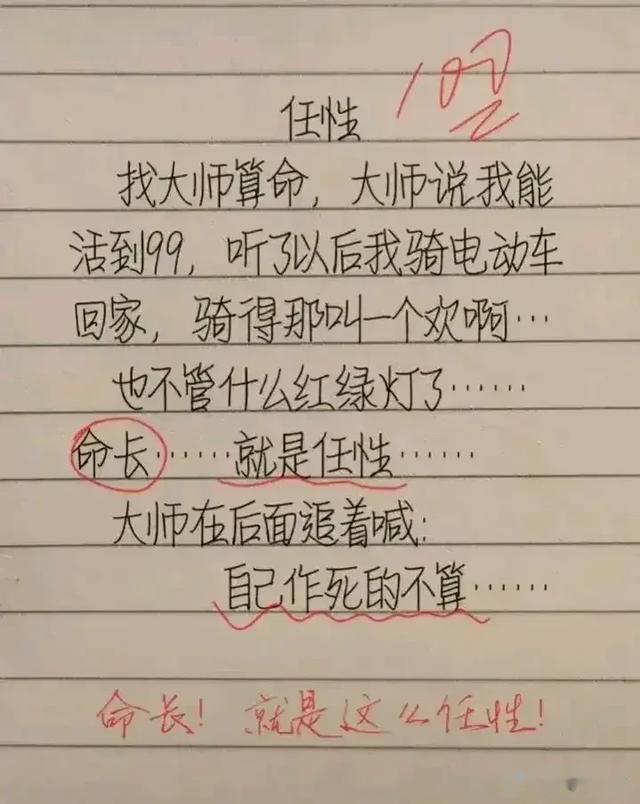 100
任性
找大师算命，大师说我能
活到99，听了以后我骑电动车
回家，骑得那叫一个欢啊…
也不管什么红绿灯了……
命长……就是任性……
大师在后面追着喊：
自己作死的不算……
命长！就是这么任性！